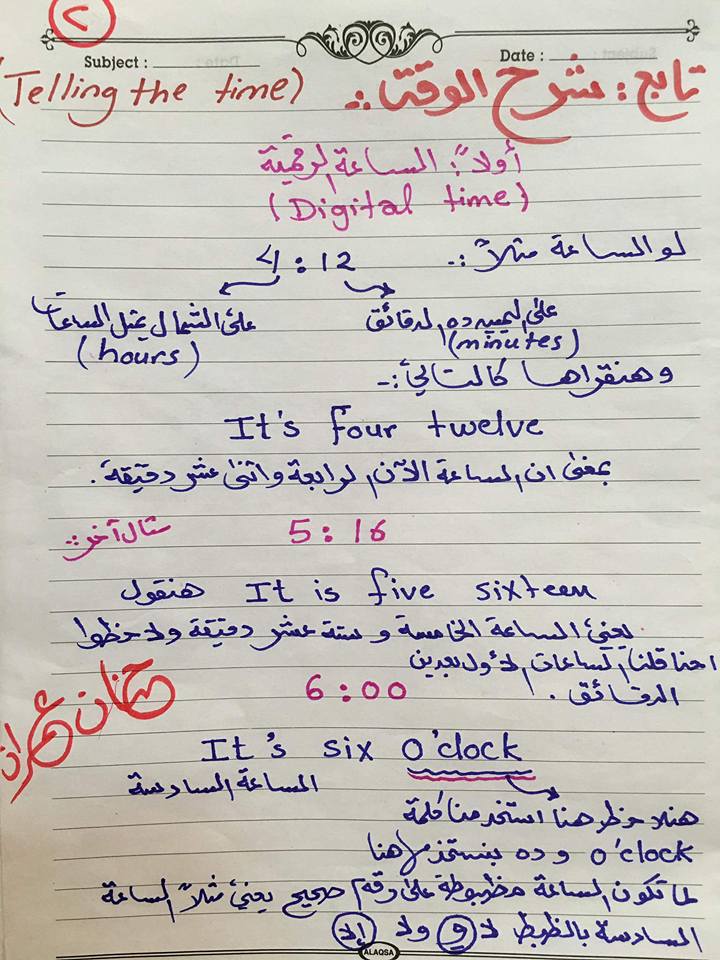 ٢
Subject :
Date :
تابع : شرح الوقت :.
(Telling the time)
أولاً : الساعة الرقمية
(Digital time)
لو الساعة مثلاً :-
4 : 12
على اليمين ده الدقائق
(minutes)
على الشمال يمثل الساعات
(hours)
وهنقراها كالتالي :-
It's four twelve
بمعنى ان الساعة الآن الرابعة واثنى عشر دقيقة .
مثال آخر :
5 : 16
هنقول It is five sixteen
يعني الساعة الخامسة و ستة عشر دقيقة ولاحظوا
احنا قلنا الساعات الأول بعدين
الدقائق .
6 : 00
حنان عمران
It's six o'clock
الساعة السادسة
هنلاحظ هنا استخدمنا كلمة
o'clock و ده بنستخدمها هنا
لما تكون الساعة مظبوطة على رقم صحيح يعني مثلاً الساعة
السادسة بالظبط لا و ولا إلا
ALAQSA